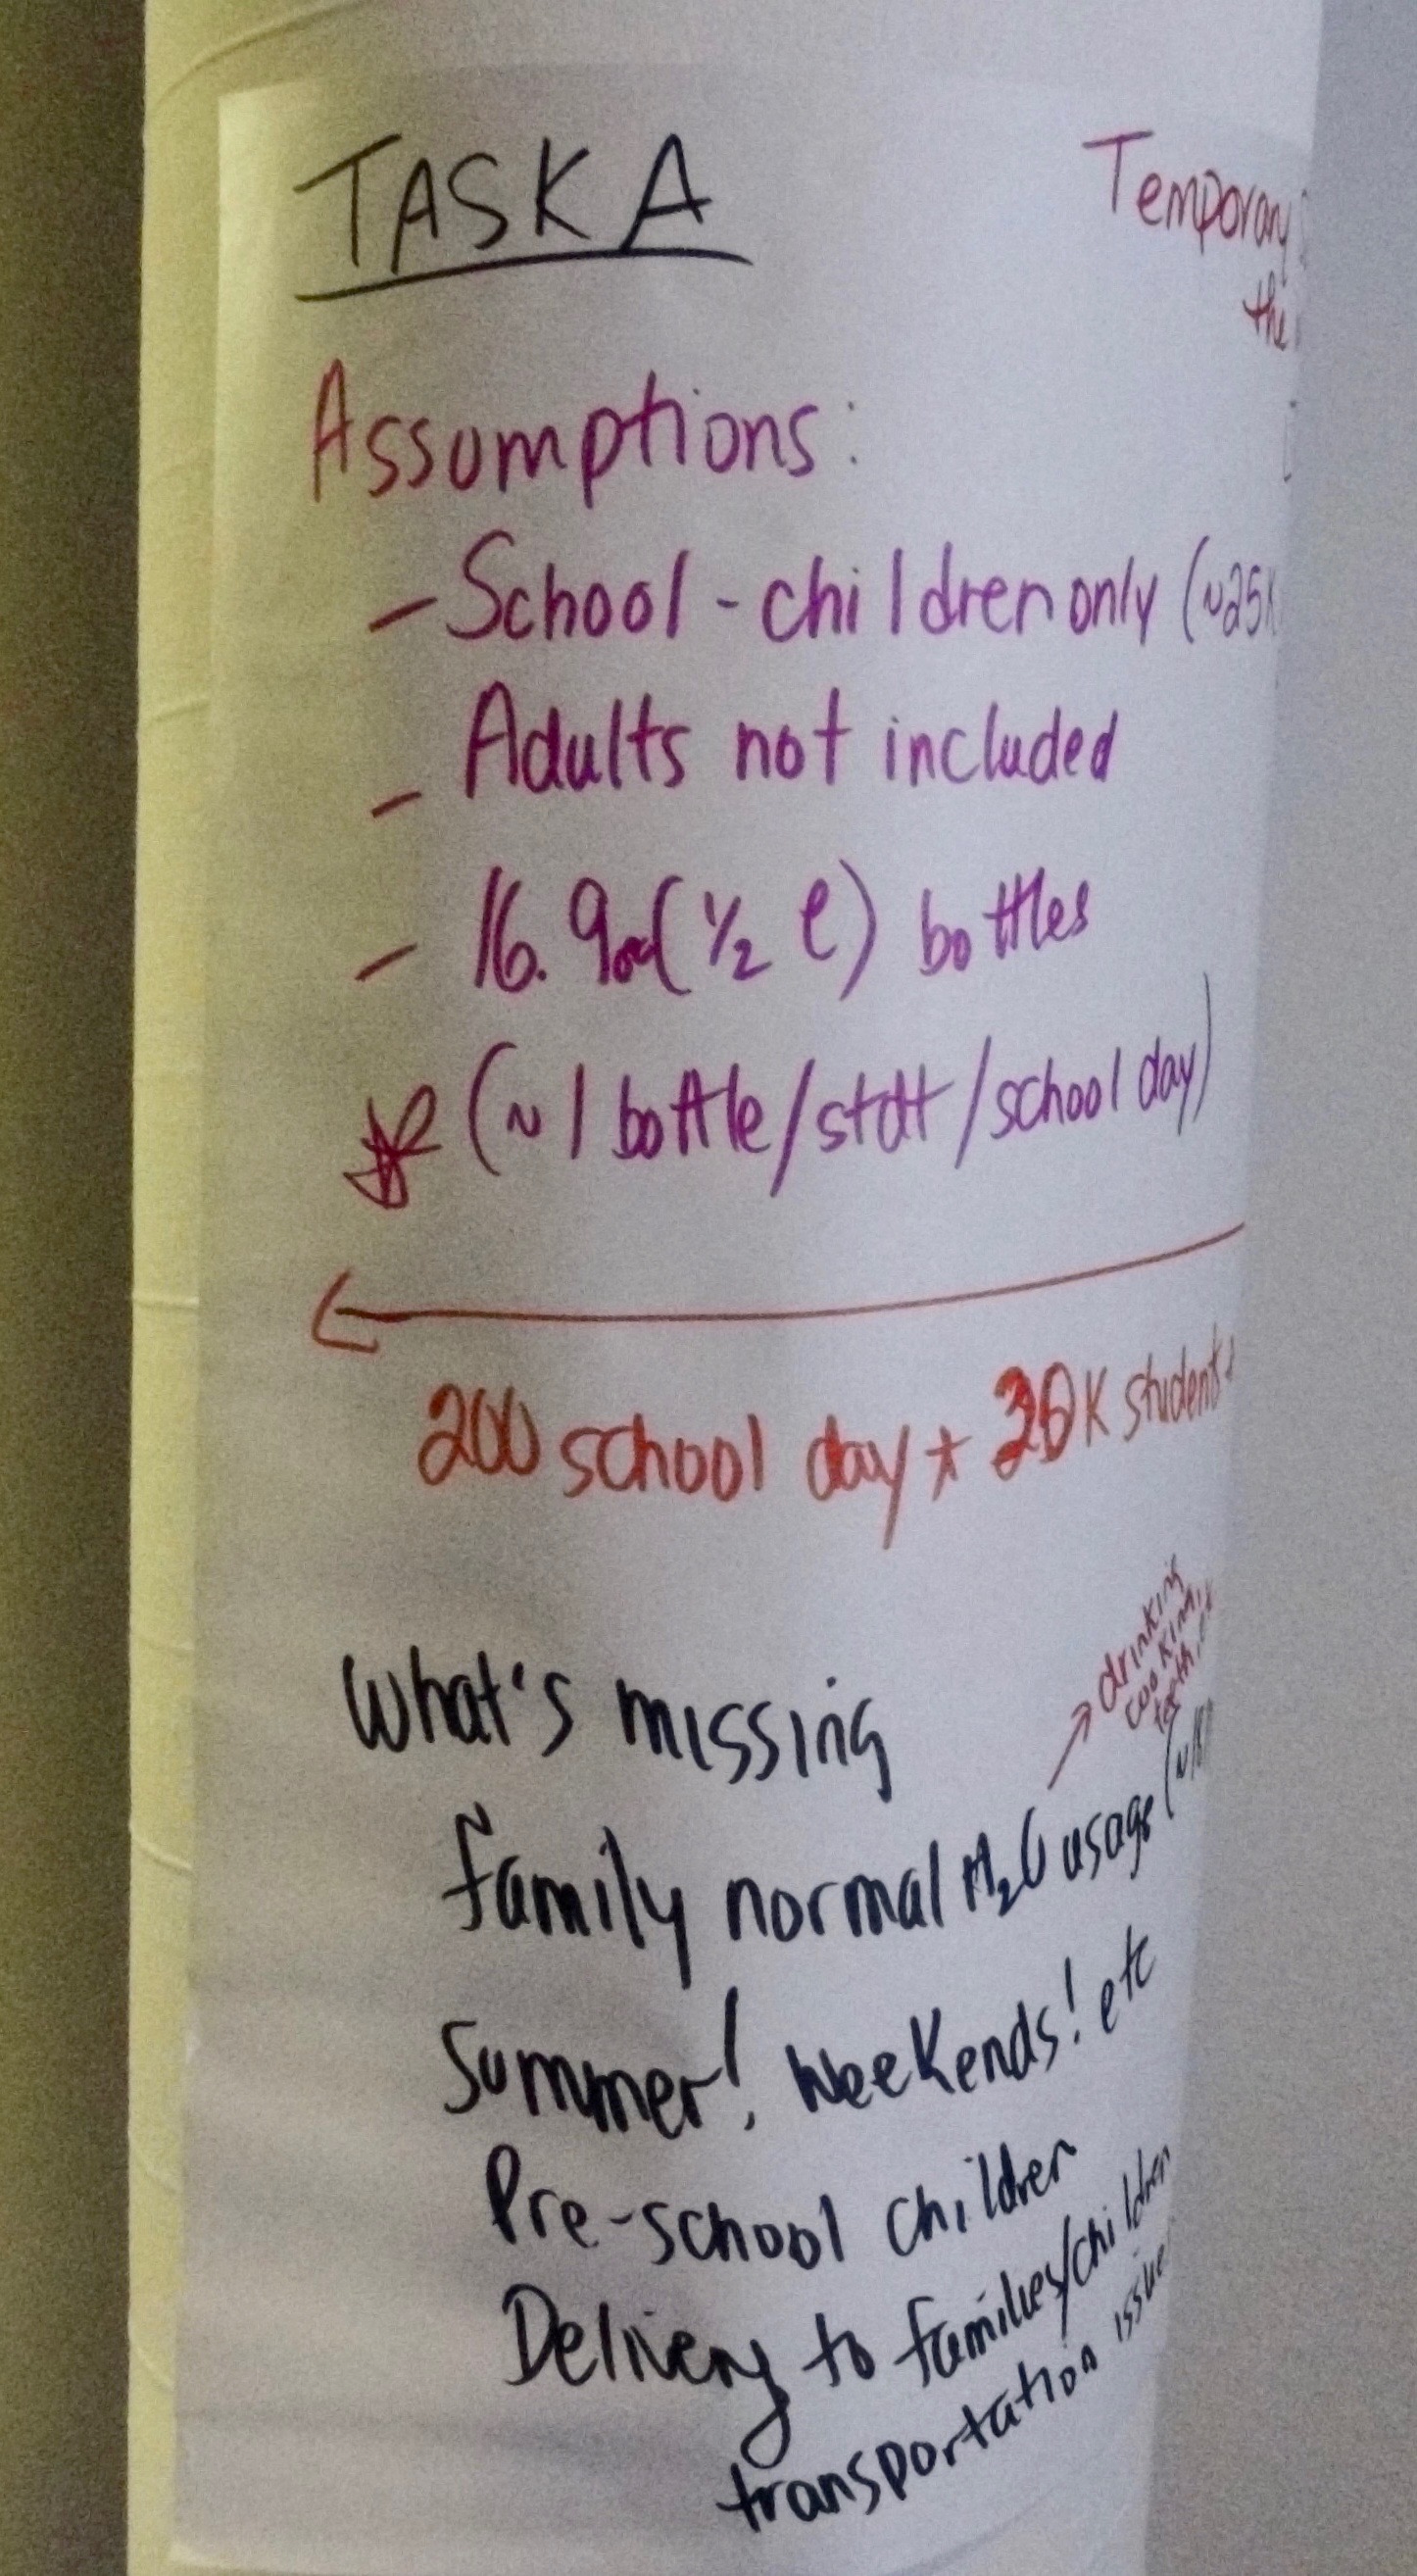 TASK A
Temporary
the
Assumptions:
- School-children only (~25K
- Adults not included
- 16.9oz (1/2 l) bottles
(~1 bottle/stdt/school day)
200 school day * 30K students
What's missing
drinking
cooking,
teeth,
family normal H₂O usage (~
Summer!, Weekends! etc
Pre-school children
Delivery to families/children
transportation issue